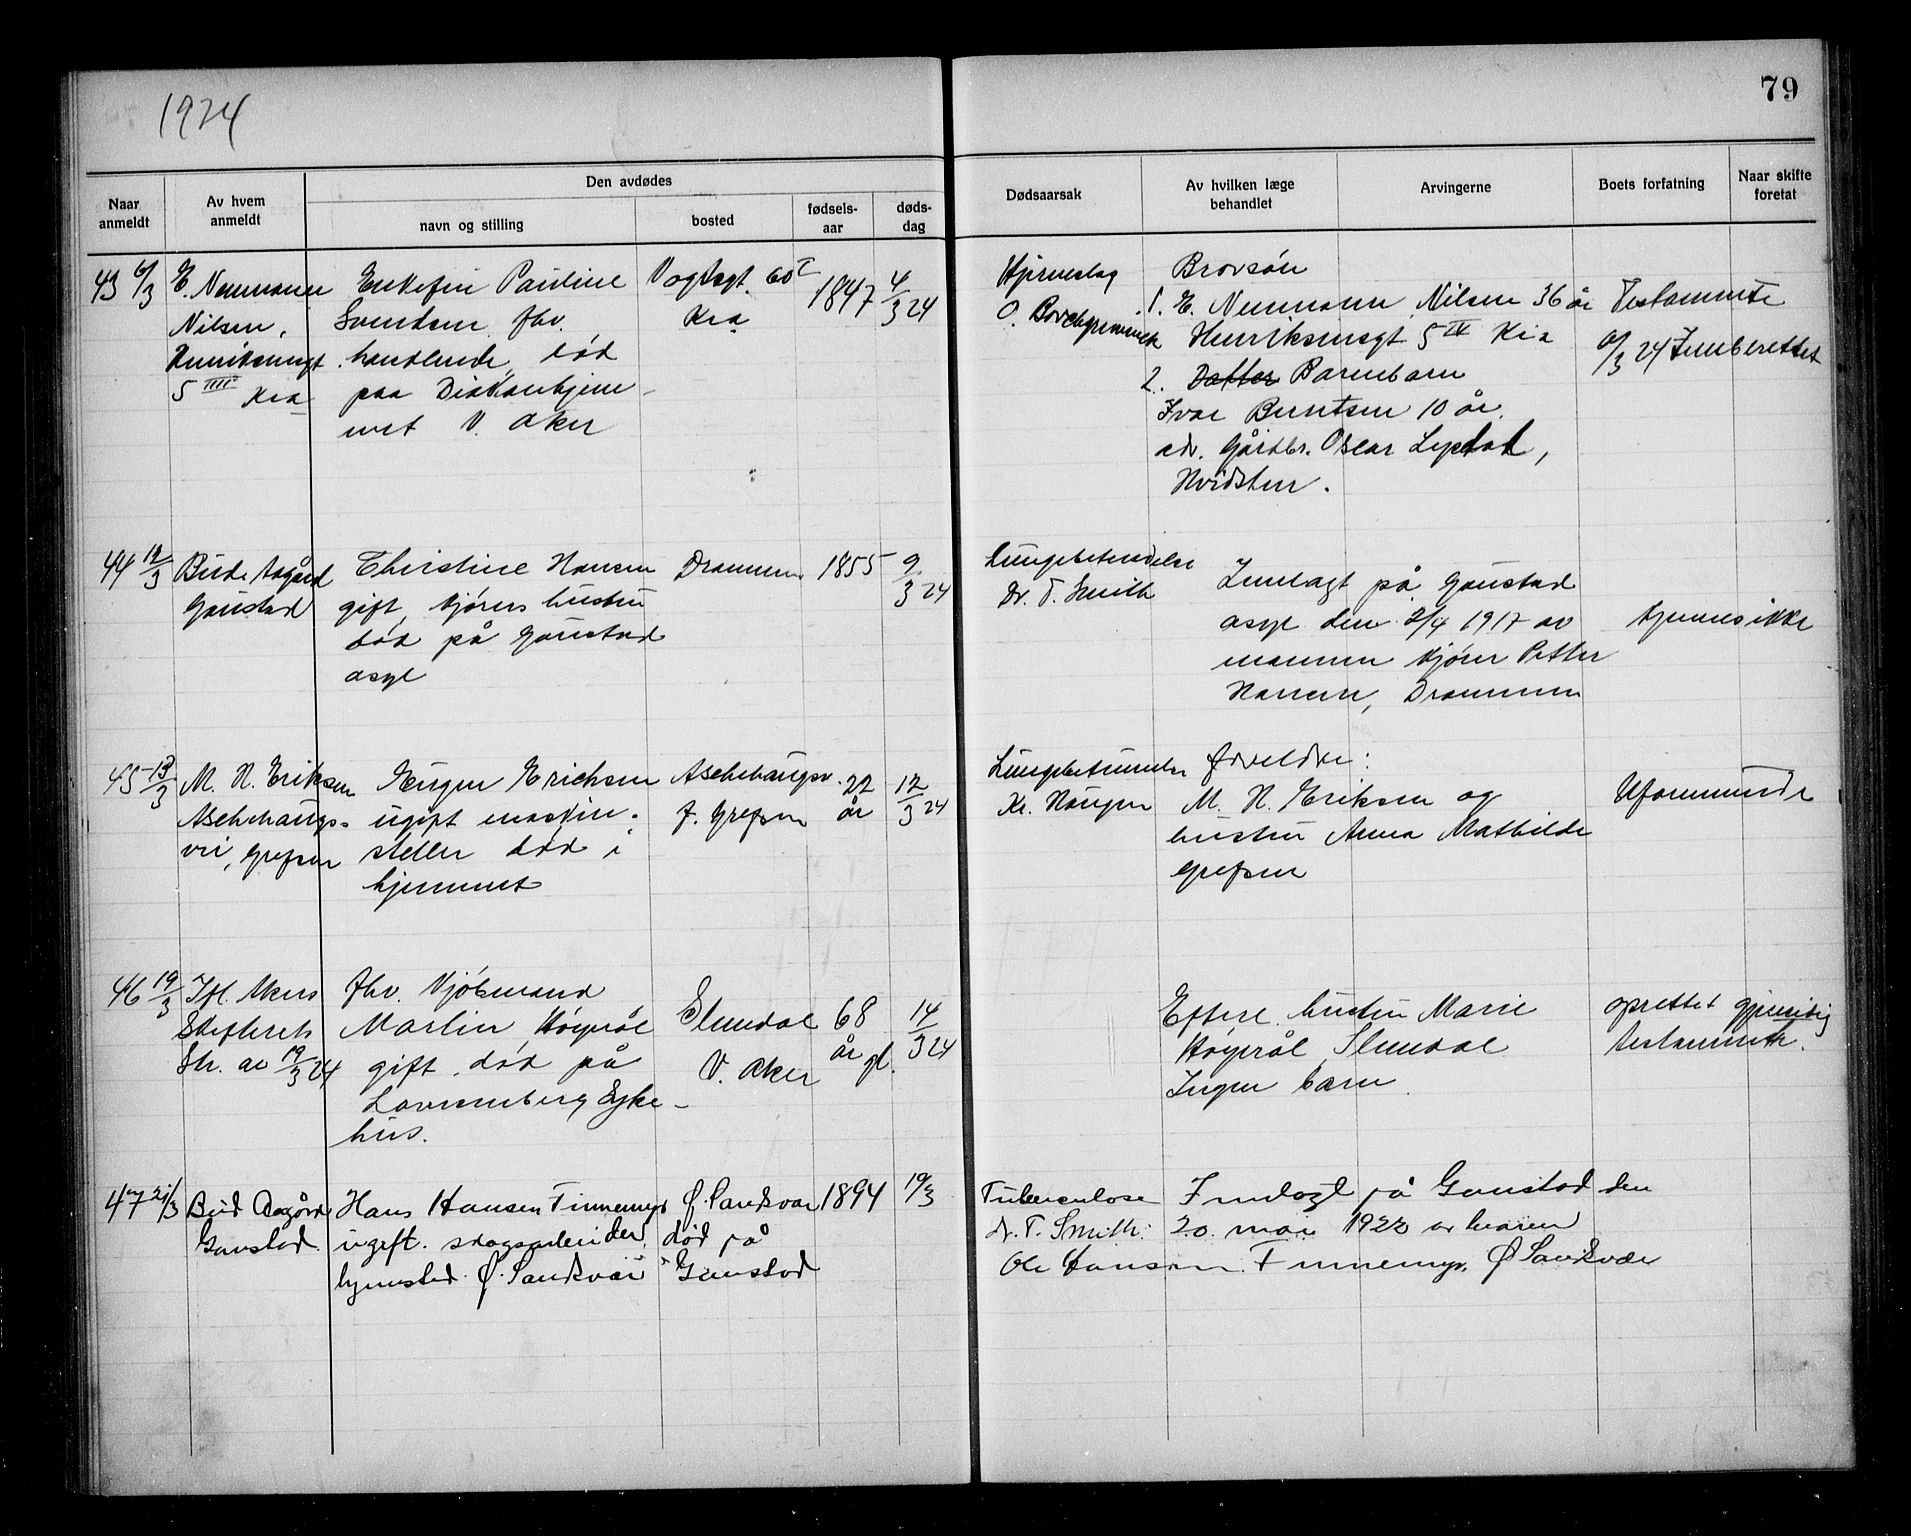 1924
79
Naar anmeldt
Av hvem anmeldt
Den avdødes
navn og stilling
bosted
fødsels-aar
døds-dag
Dødsaarsak
Av hvilken læge behandlet
Arvingerne
Boets forfatning
Naar skifte foretat
43 6/3
E. Neumann
Nilsen,
Henriksensgt.
5 IIII Kra
Enkefru Pauline
Svendsen, fhv.
handlende, død
paa Diakonhjem-
met V. Aker
Vogtsgt. 60 I
Kra
1847
4/3 24
Hjerneslag
O.
Brorsøn
1. E. Neumann Nilsen 36 år
Henriksensgt 5 IV Kra
2. Datter Barnebarn
Ivar Berntsen 10 år.
adr. Gårdbr. Oscar
Hvidsten.
Testamente
6/3 24 Innberettet
44 12/3
Bud. Aagård
Gaustad
Christine Hansen
gift, kjøren hustru
død på Gaustad
asyl
Drammen
1855
9/3 24
Lungebetendelse
Dr. T. Smith
Innlagt på Gaustad
asyl den 2/4 1917 av
mannen kjører Petter
Hansen, Drammen
kjennes ikke
45 13/3
M. H. Eriksen
Aschehougs-
vei, Grefsen
Eugen Erichsen
ugift maskin-
steller død i
hjemmet
Aschehougsv.
f. Grefsen
22
år
12/3 24
Lungebetennelse
Kr. Haugen
Foreldre:
M. H. Eriksen og
hustru Anna Mathilde
Grefsen
Uformuende
46 19/3
Ifl. Akers
Skifterets
Skr. av 19/3 24
fhv. Kjøbmand
Martin Høyerål
gift, død på
Lovisenberg Syke-
hus.
Slemdal
V. Aker
68
år gl.
14/3 24
Efterl. hustru Marie
Høyerål Slemdal
Ingen barn
oprettet gjensidig
testamente.
47 21/3
Bud Aagård
Gaustad.
Hans Hansen Finnemyr
ugift. skogsarbeider,
hjemsted. Ø. Sandsvær
Ø. Sandsvær
død på
Gaustad
1894
19/3
Tuberculose
dr. T. Smith.
Innlagt på Gaustad den
20. mai 1922 av broren
Ole Hansen Finnemyr, Ø Sandsvær